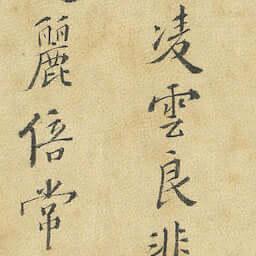 凌雲良非
麗倍常